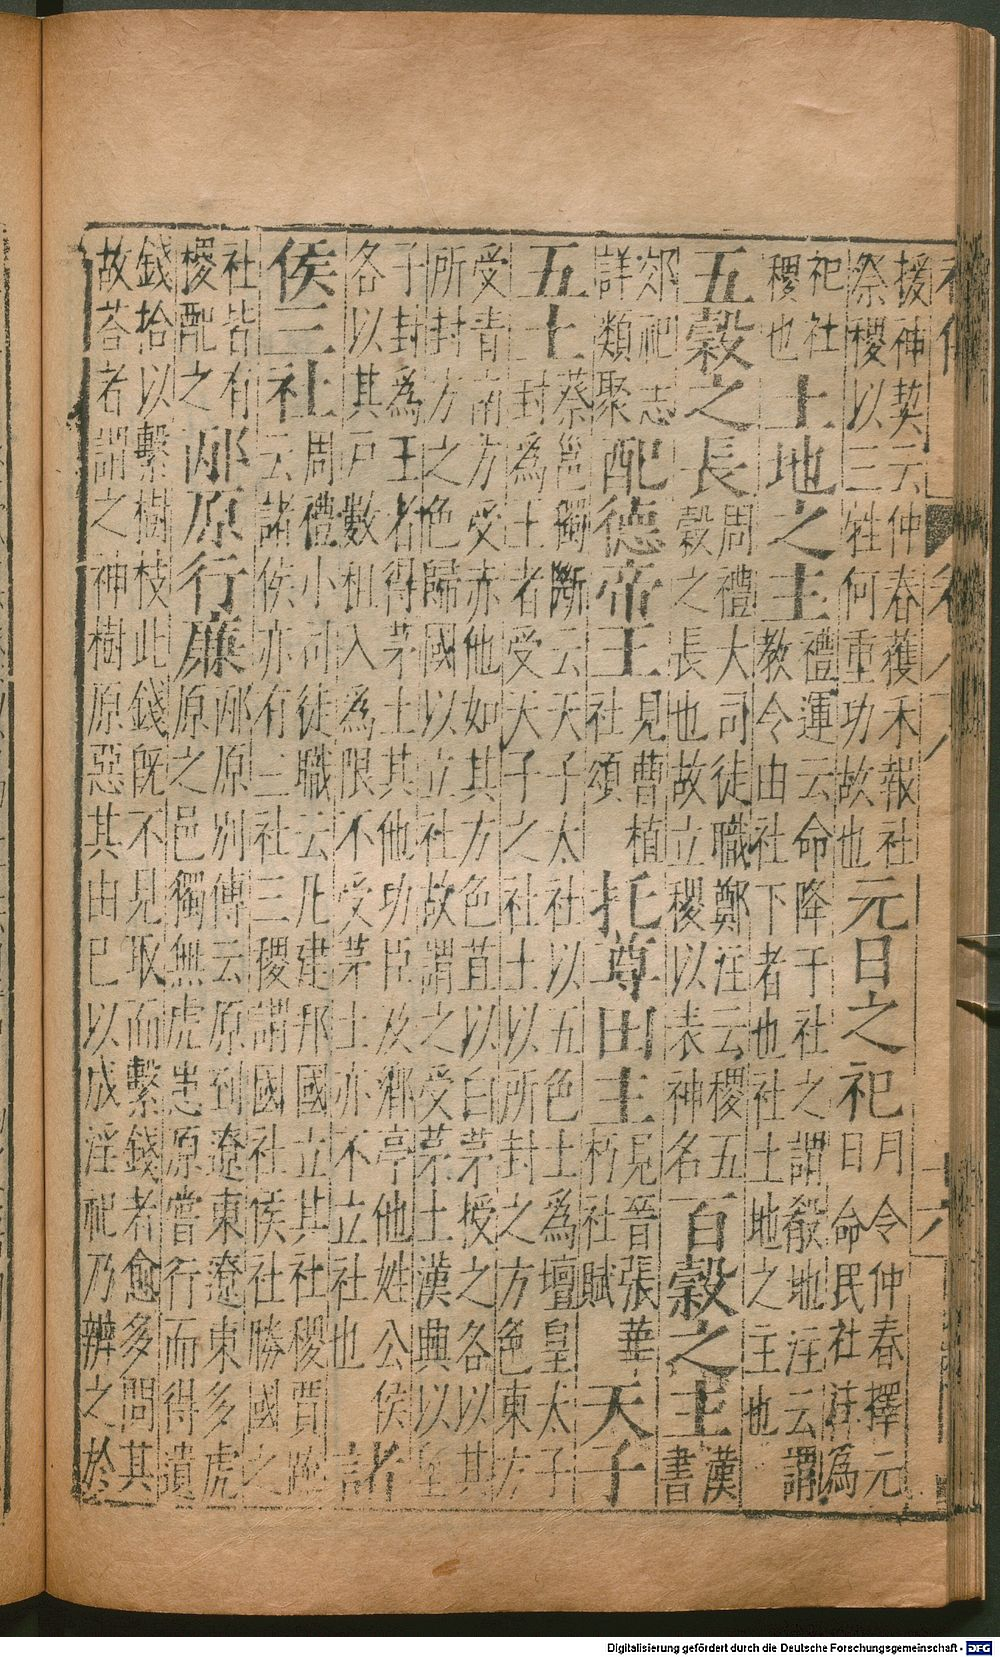 援神契云仲春穫禾報社
祭稷以三牲何重功故也
元日之祀
月令仲春擇元
日命民社註為
祀社
稷也
土地之主
禮運云命降于社之謂殽地注云謂
教令由社下者也社土地之主也
五穀之長
周禮大司徒職鄭注云稷五
穀之長也故立稷以表神名
百穀之主
漢
書
郊祀志
詳類聚
配德帝王
見曹植
社頌
托尊田主
見晉張華
朽社賦
天子
五土
蔡邕獨斷云天子太社以五色土為壇皇太子
封為土者受天子之社土以所封之方色東方
受青南方受赤他如其方色苴以白茅授之各以其
所封方之色歸國以立社故謂之受茅土漢興以至
子封為王者得茅土其他功臣及鄉亭他姓公侯
各以其戶數租入為限不受茅土亦不立社也
諸
侯三社
周禮小司徒職云凡建邦國立其社稷賈疏
云諸侯亦有三社三稷謂國社侯社勝國之
社皆有
稷配之
邴原行廉
邴原別傳云原到遼東遼東多虎
原之邑獨無虎恙原嘗行而得遺
錢拾以繫樹枝此錢既不見取而繫錢者愈多問其
故荅者謂之神樹原惡其由已以成淫祀乃辨之於
Digitalisierung gefördert durch die Deutsche Forschungsgemeinschaft - DFG